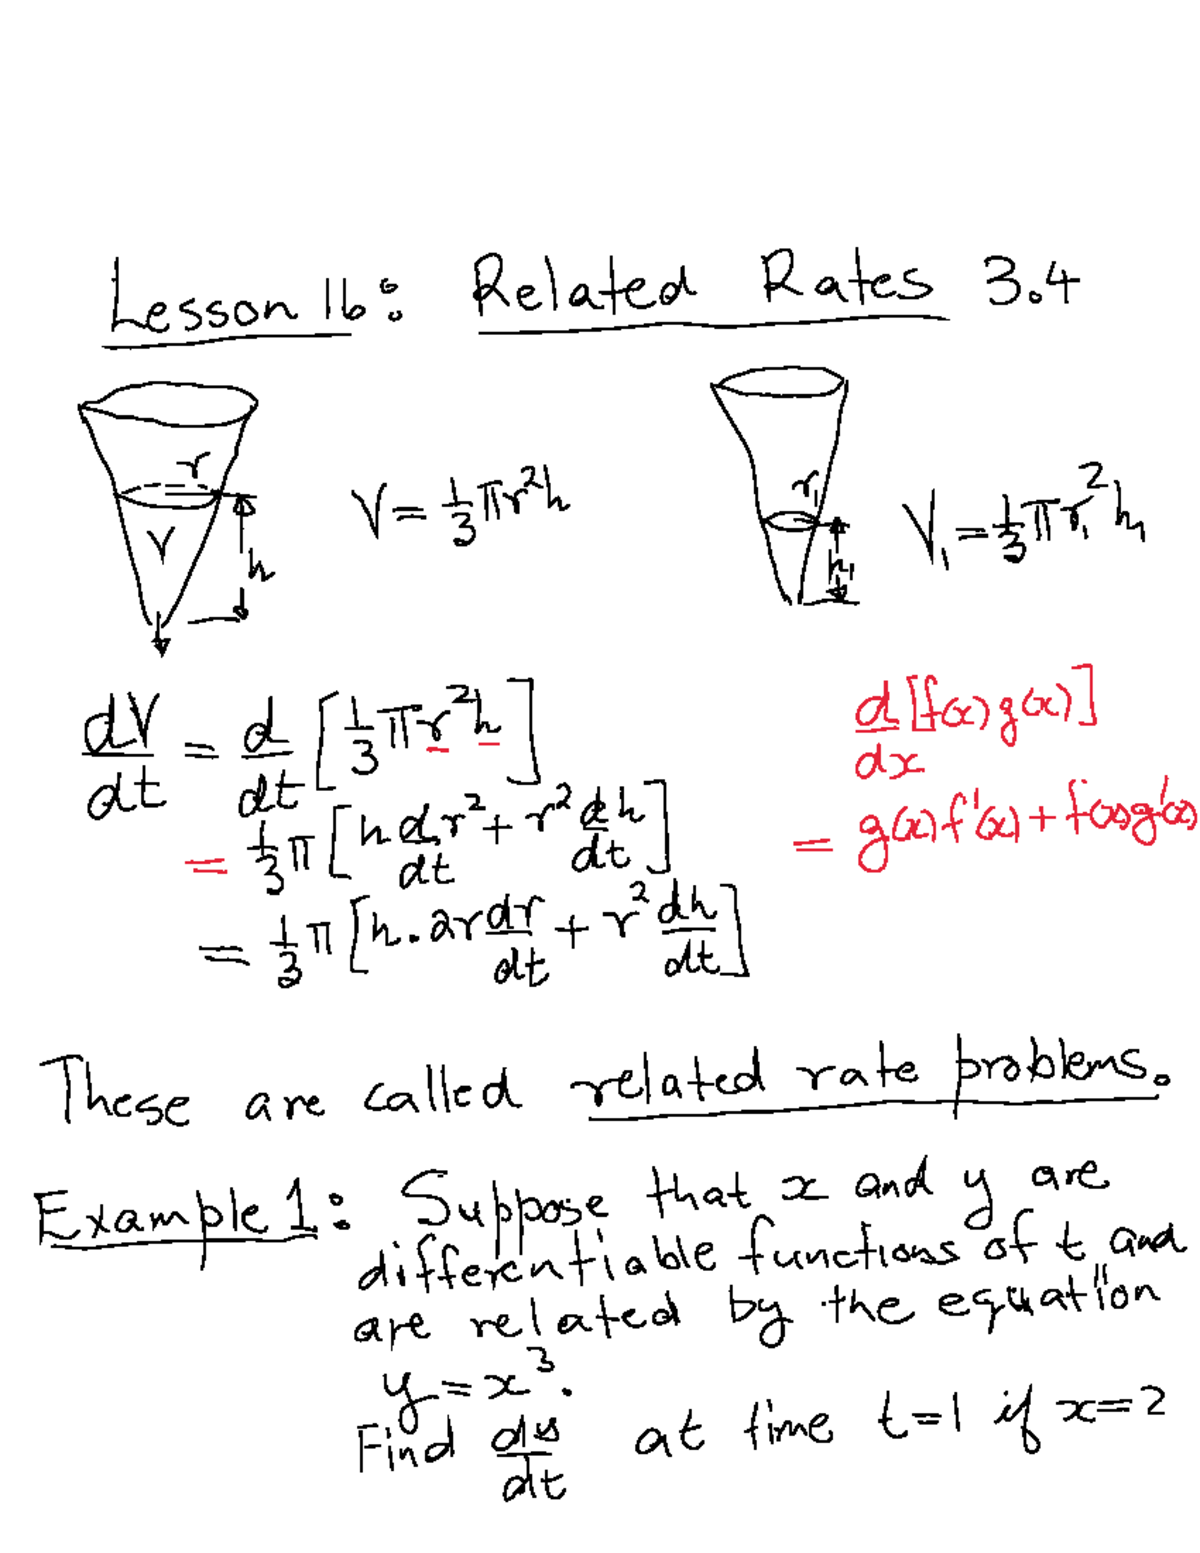 Lesson 16: Related Rates 3.4
r
V
h
V = 1/3 πr²h
r₁
h₁
V₁ = 1/3 πr₁²h₁
dV/dt = d/dt [1/3 πr²h]
= 1/3 π [h d/dt r² + r² dh/dt]
= 1/3 π [h · 2r dr/dt + r² dh/dt]
d/dx [f(x) g(x)]
= g(x) f'(x) + f(x) g'(x)
These are called related rate problems.
Example 1: Suppose that x and y are
differentiable functions of t and
are related by the equation
y = x³.
Find dy/dt at time t=1 if x=2